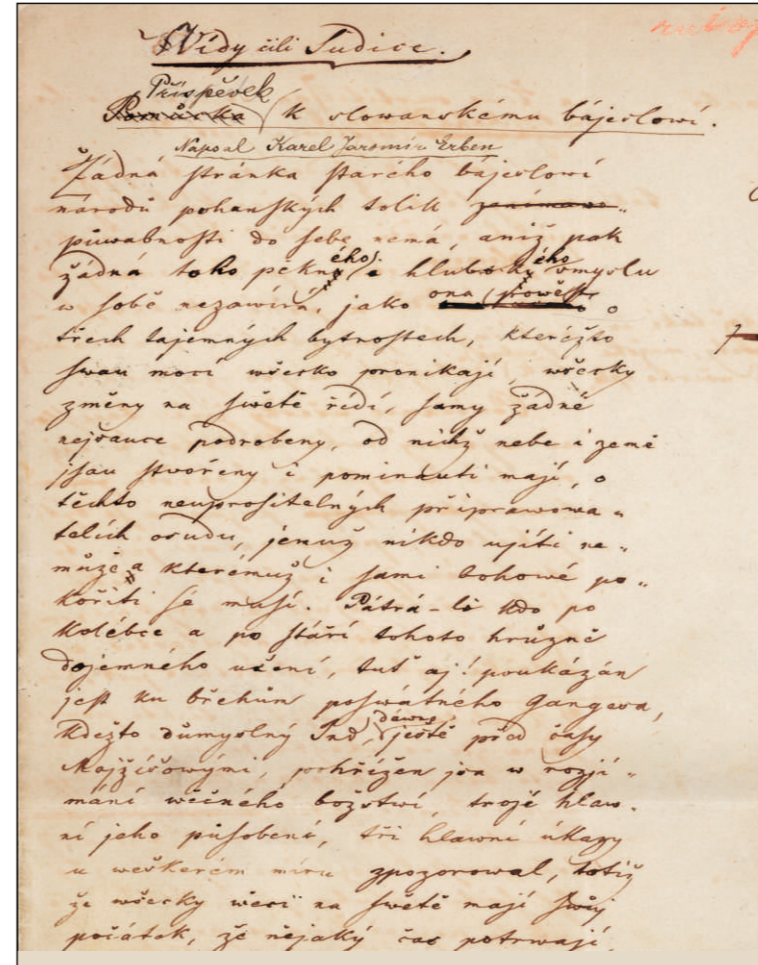 Wídy čili Sudice.
Příspěvek
Pomůcka k slowanskému bájeslowí.
Napsal Karel Jaromír Erben
Žádná stránka starého bájeslowí
národů pohanských tolik
půwabnosti do sebe nemá, aniž pak
žádná toho pěkného a hlubokého smyslu
w sobě nezawírá, jako ona powěst o
třech tajemných bytnostech, kteréžto
swau mocí wšecko pronikají, wšecky
změny na swětě řídí, samy žádné
nejsauce podrobeny, od nichž nebe i země
jsau stwořeny i pominauti mají, o
těchto neuprositelných připrawowa„
telích osudu, jemuž nikdo ujíti ne„
může a kterémuž i sami bohowé po„
kořiti se musí. Pátrá-li kdo po
kolébce a po stáří tohoto hrůzně
dojemného učení, tuť aj! poukázán
jest ku břehům poswátného Gangesa,
kdežto důmyslný Ind, dáwno ještě před časy
Mojžíšowými, pohřížen jsa w rozjí„
mání wěčného božstwí, trojé hlaw„
ní jeho působení, tři hlawní úkazy
w weškerém míru zpozorowal, totiž
že wšecky wěci na swětě mají swůj
počátek, že nějaký čas potrwají